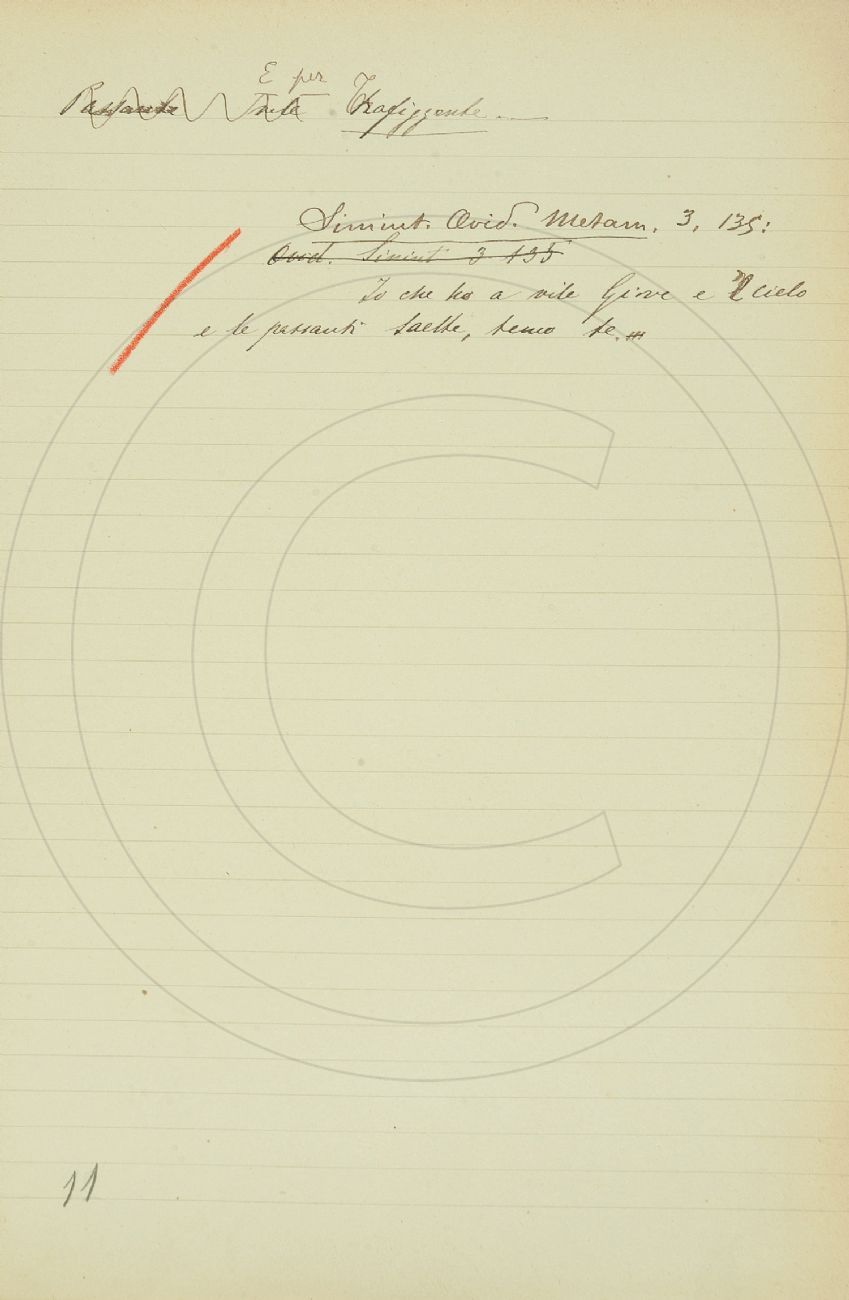 E per
Passante Trafiggente. —
Simint. Ovid. Metam. 3, 135:
Ovid. Simint 3 135
Io che ho a vile Giove e 'l cielo
e le passanti saette, temo te.
11